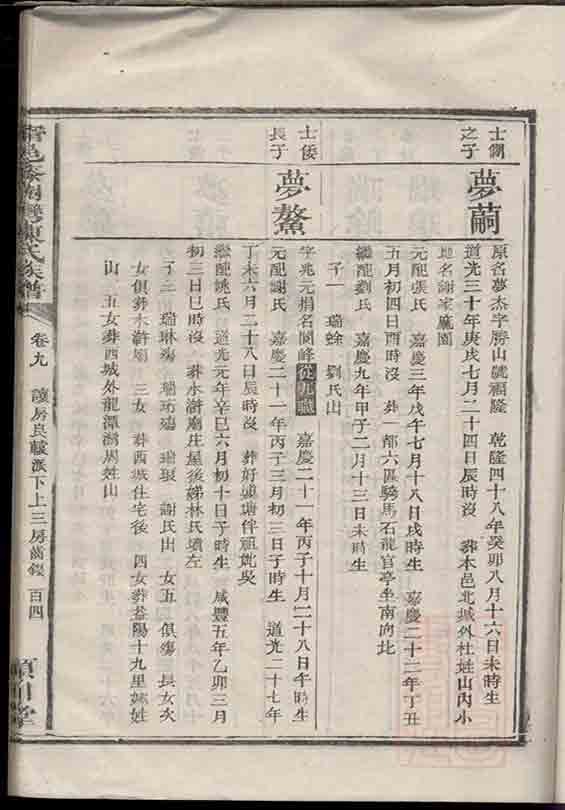 士
之子
夢蕑
原名夢杰字勝山號福隆 乾隆四十八年癸卯八月十六日未時生
道光三十年庚戌七月二十四日辰時沒 葬本邑北城外杜姓山內小
地名謝家龎園
元配張氏 嘉慶三年戊午七月十八日戌時生 嘉慶二十二年丁丑
五月初四日酉時沒 葬一都六區騎馬石龍官亭坐南向北
繼配劉氏 嘉慶九年甲子二月十三日未時生
子一 瑞蛤 劉氏出
士倭
長子
夢鰲
字兆元捐名閬峰從九職 嘉慶二十一年丙子十月二十八日午時生
元配謝氏 嘉慶二十一年丙子三月初三日子時生 道光二十七年
丁未六月二十八日辰時沒 葬好塘伴祖妣吳
繼配姚氏 道光元年辛巳六月初十日子時生 咸豐五年乙卯三月
初三日巳時沒 葬水滸廟庄屋後娣林氏墳左
子三 瑞琳殤 瑞珎殤 瑞琅 謝氏出 女五 俱殤 長女次
女俱葬水滸廟 三女 葬西城住宅後 四女葬益陽十九里姊姓
山 五女葬西城外龍潭灣周姓山
邑 陳氏族譜 卷九 護房良䡟派下上三房齒錄 百四 潁川堂